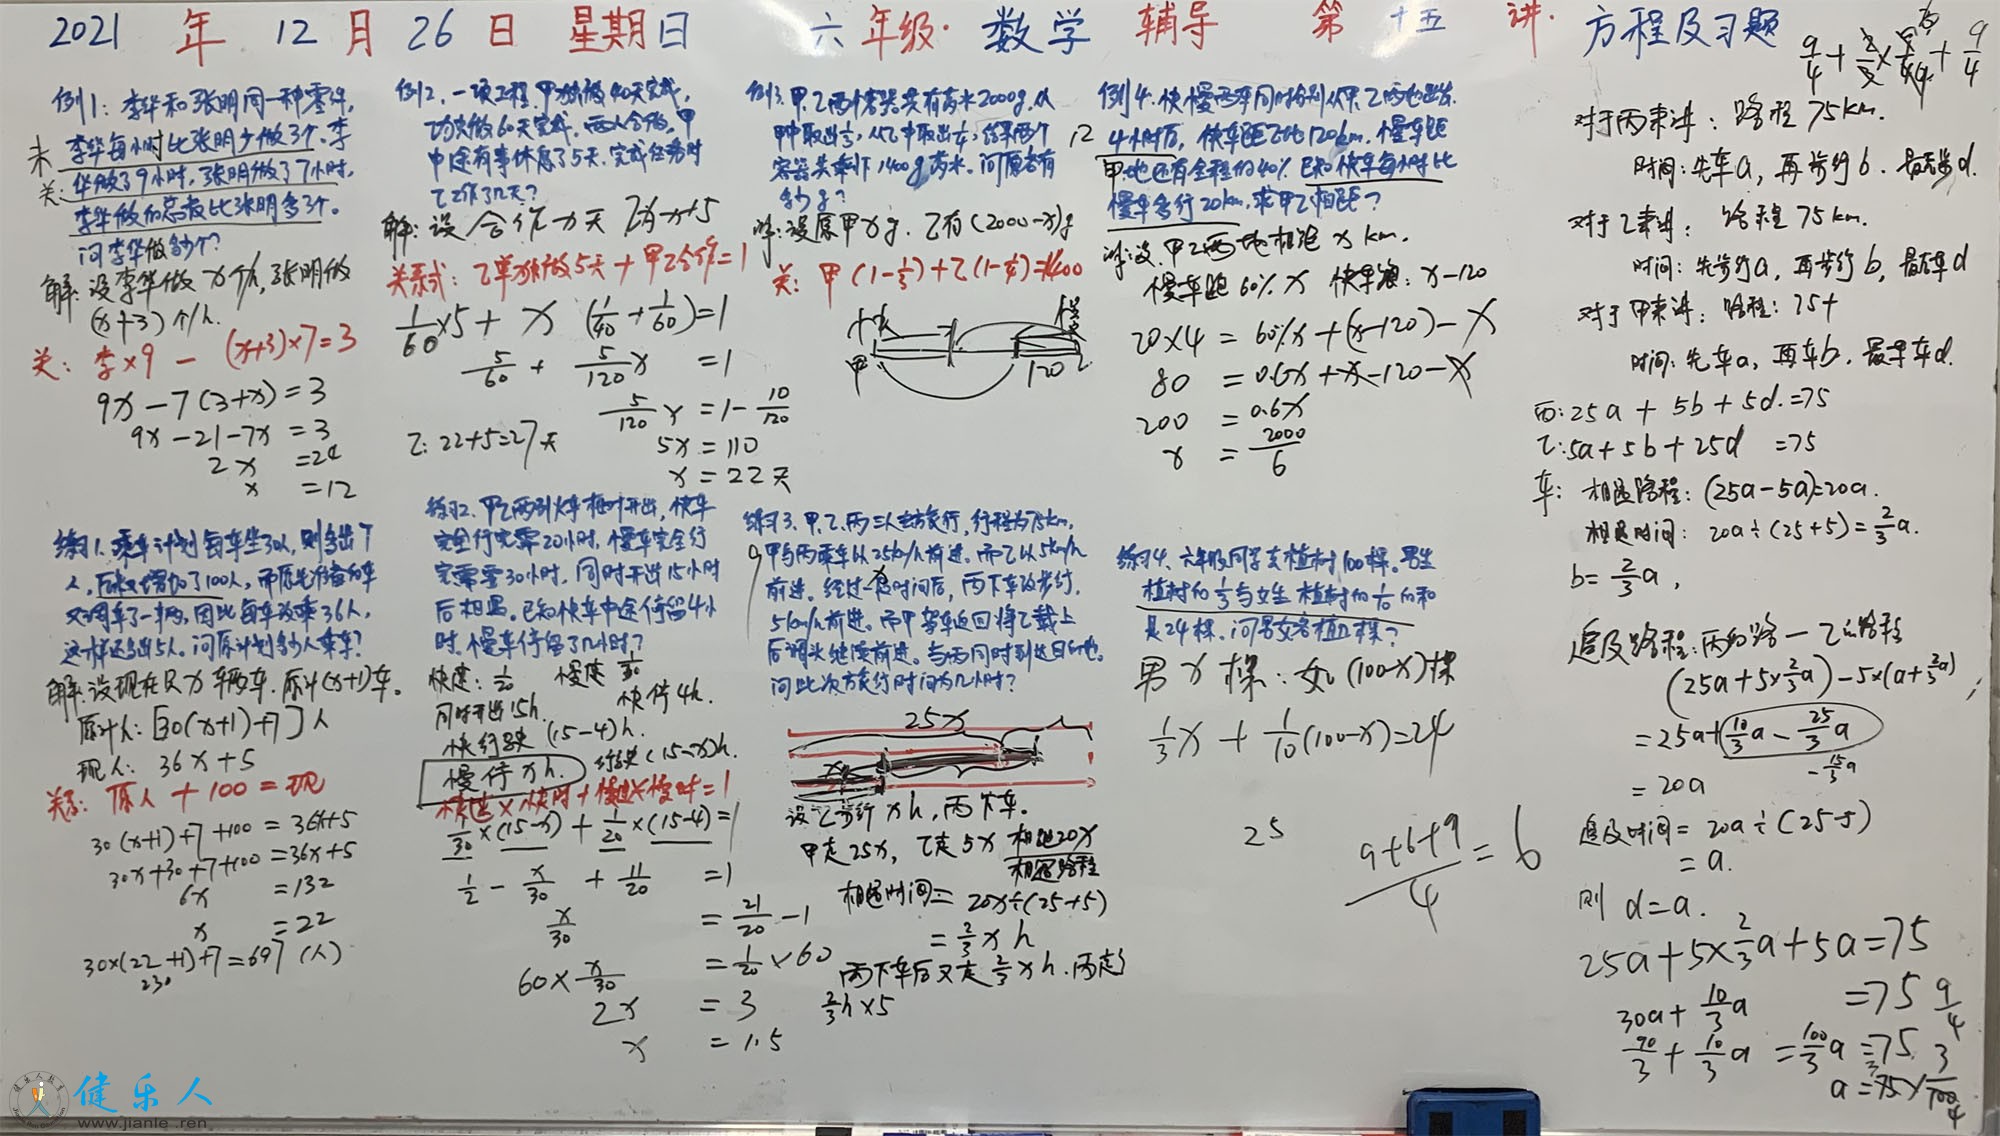 2021 年 12 月 26 日 星期日 六年级· 数学 辅导 第 十五 讲· 方程及习题
例1: 李华和张明同一种零件,
李华每小时比张明少做3个.李
华做了9小时,张明做了7小时,
李华做的总数比张明多3个。
问李华做多少个?
解: 设李华做 x个/h, 张明做
(x+3) 个/h.
关: 李×9 - (x+3)×7=3
9x-7(3+x)=3
9x-21-7x =3
2x =24
x =12
例2. 一项工程.甲独做40天完成,
乙独做60天完成. 两人合做. 甲
中途有事休息了5天.完成任务时
乙工作了几天?
解: 设 合作 x天 乙为x+5
关系式: 乙单独做5天 + 甲乙合作=1
1/60×5+ x (1/40+1/60)=1
5/60 + 5/120x =1
5/120x =1-10/120
5x =110
x =22天
乙: 22+5=27天
例3. 甲.乙两个容器共有药水2000g.从
甲中取出1/3,从乙中取出1/4,结果两个
容器共剩下1400g药水. 问原各有
多少g?
解:设原甲 x g. 乙有(2000-x)g
关: 甲(1-1/3)+乙(1-1/4)=1400
甲 120 乙
例4. 快慢两车同时分别从甲.乙两地出发.
4小时后, 快车距乙地120km. 慢车距
甲地还有全程的40%. 已知快车每小时比
慢车多行20km,求甲乙相距?
解:设.甲乙两地相距 x km.
慢车跑60%x 快车跑: x-120
20×4 = 60%x+(x-120)-x
80 =0.6x+x-120-x
200 =0.6x
x =2000/6
9/4+2/3×9/4+9/4
对于丙来讲: 路程 75km.
时间: 先车a, 再步行b. 最步d.
对于乙来讲: 路程 75km.
时间: 先步行a, 再步行b, 最后车d
对于甲来讲: 路程: 75+
时间: 先车a, 再车b. 最后车d.
丙: 25a + 5b + 5d.=75
乙: 5a+5b+25d =75
车: 相遇路程: (25a-5a)=20a.
相遇时间: 20a÷(25+5)=2/3a.
b=2/3a,
追及路程:丙的路-乙的路程
(25a+5×2/3a)-5×(a+2/3a)
=25a+10/3a-25/3a
-15/3a
=20a
追及时间= 20a÷(25-5)
=a.
则 d=a.
25a+5×2/3a+5a=75
30a+10/3a =75
90/3+10/3a =100/3a =75
a=75×3/100
9/4
练习1.乘车计划每车坐30人,则多出7
人,后来又增加了100人,而原先准备的车
又调车了一辆,因此每车改乘36人,
这样还多出5人。问原计划多少人乘车?
解:设现在只x辆车.原计(x+1)车。
原计人: [30(x+1)+7]人
现人: 36x+5
关系: 原人 +100=现
30(x+1)+7+100 =36x+5
30x+30+7+100 =36x+5
6x =132
x =22
30×(22+1)+7=697(人)
练习2. 甲乙两列火车相对开出, 快车
完全行完需20小时, 慢车完全行
完需要30小时. 同时开出15小时
后相遇。已知快车中途停留4小
时.慢车停留了几小时?
快速: 1/20 慢速 1/30
同时开出15h. 快停4h.
快行驶 (15-4)h.
慢停xh. 行驶(15-x)h.
快速×快时+慢速×慢时=1
1/30×(15-x)+1/20×(15-4)=1
1/2 - x/30 + 11/20 =1
x/30 =21/20-1
60×x/30 =1/20×60
2x =3
x =1.5
练习3.甲.乙.丙三人去旅行,行程为75km,
甲与丙乘车以25km/h前进。而乙以5km/h
前进。经过一段时间后, 丙下车改步行,
5km/h前进。而甲驾车返回将乙载上
后调头继续前进。与丙同时到达目的地。
问此次旅行时间为几小时?
25x
设乙步行xh,丙下车。
甲走25x, 乙走5x 相距20x
相遇路程
相遇时间= 20x÷(25+5)
=2/3xh
丙下车后又走2/3xh.丙走
2/3h×5
练习4.六年级同学去植树100棵。男生
植树的1/3与女生植树的1/10的和
是24棵. 问男女各植几棵?
男x棵: 女(100-x)棵
1/3x+1/10(100-x)=24
25
9+6+9/4=6
健乐人
www.jianle.ren